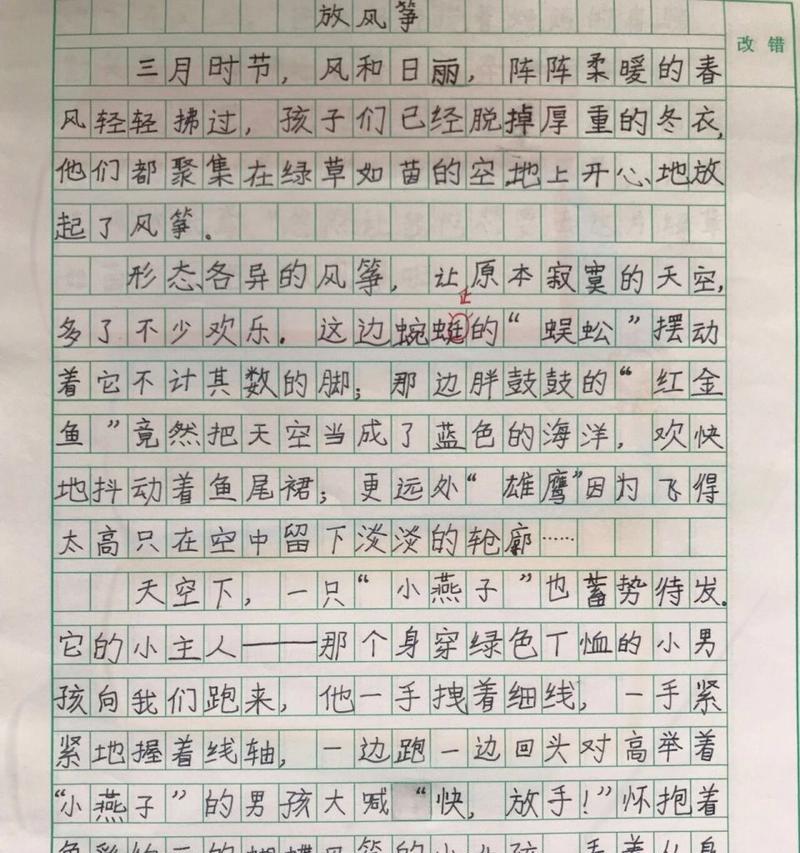 放风筝
改错
三月时节，风和日丽，阵阵柔暖的春
风轻轻拂过，孩子们已经脱掉厚重的冬衣，
他们都聚集在绿草如苗的空地上开心地放
起了风筝。
形态各异的风筝，让原本寂寞的天空，
多了不少欢乐。这边蜿蜓的“蜈蚣”摆动
着它不计其数的脚；那边胖鼓鼓的“红金
鱼”竟然把天空当成了蓝色的海洋，欢快
地抖动着鱼尾裙；更远处“雄鹰”因为飞得
太高只在空中留下淡淡的轮廓……
天空下，一只“小燕子”也蓄势待发。
它的小主人——那个身穿绿色T恤的小男
孩向我们跑来，他一手拽着细线，一手紧
紧地握着线轴，一边跑一边回头对高举着
“小燕子”的男孩大喊“快，放手！”怀抱着